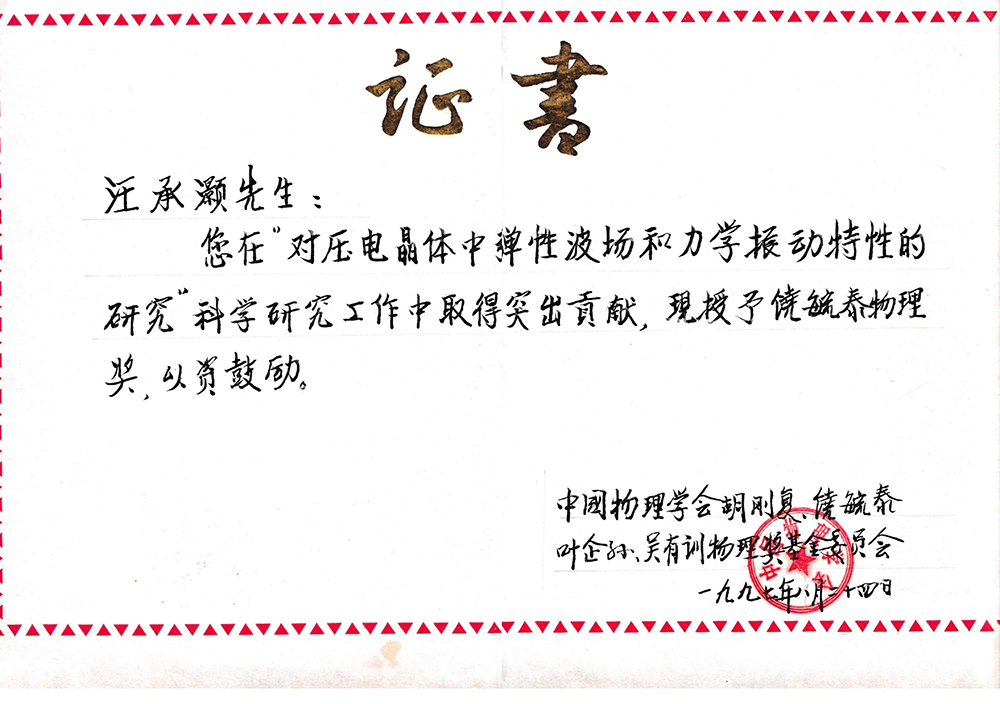 证書
汪承灝先生：
您在"对压电晶体中弹性波场和力学振动特性的
研究"科学研究工作中取得突出貢献，現授予饶毓泰物理
奖，以资鼓励。
中國物理学会胡刚复、饶毓泰
叶企孙、吴有训物理奖基金委员会
一九九七年八月二十四日
中国物理学会